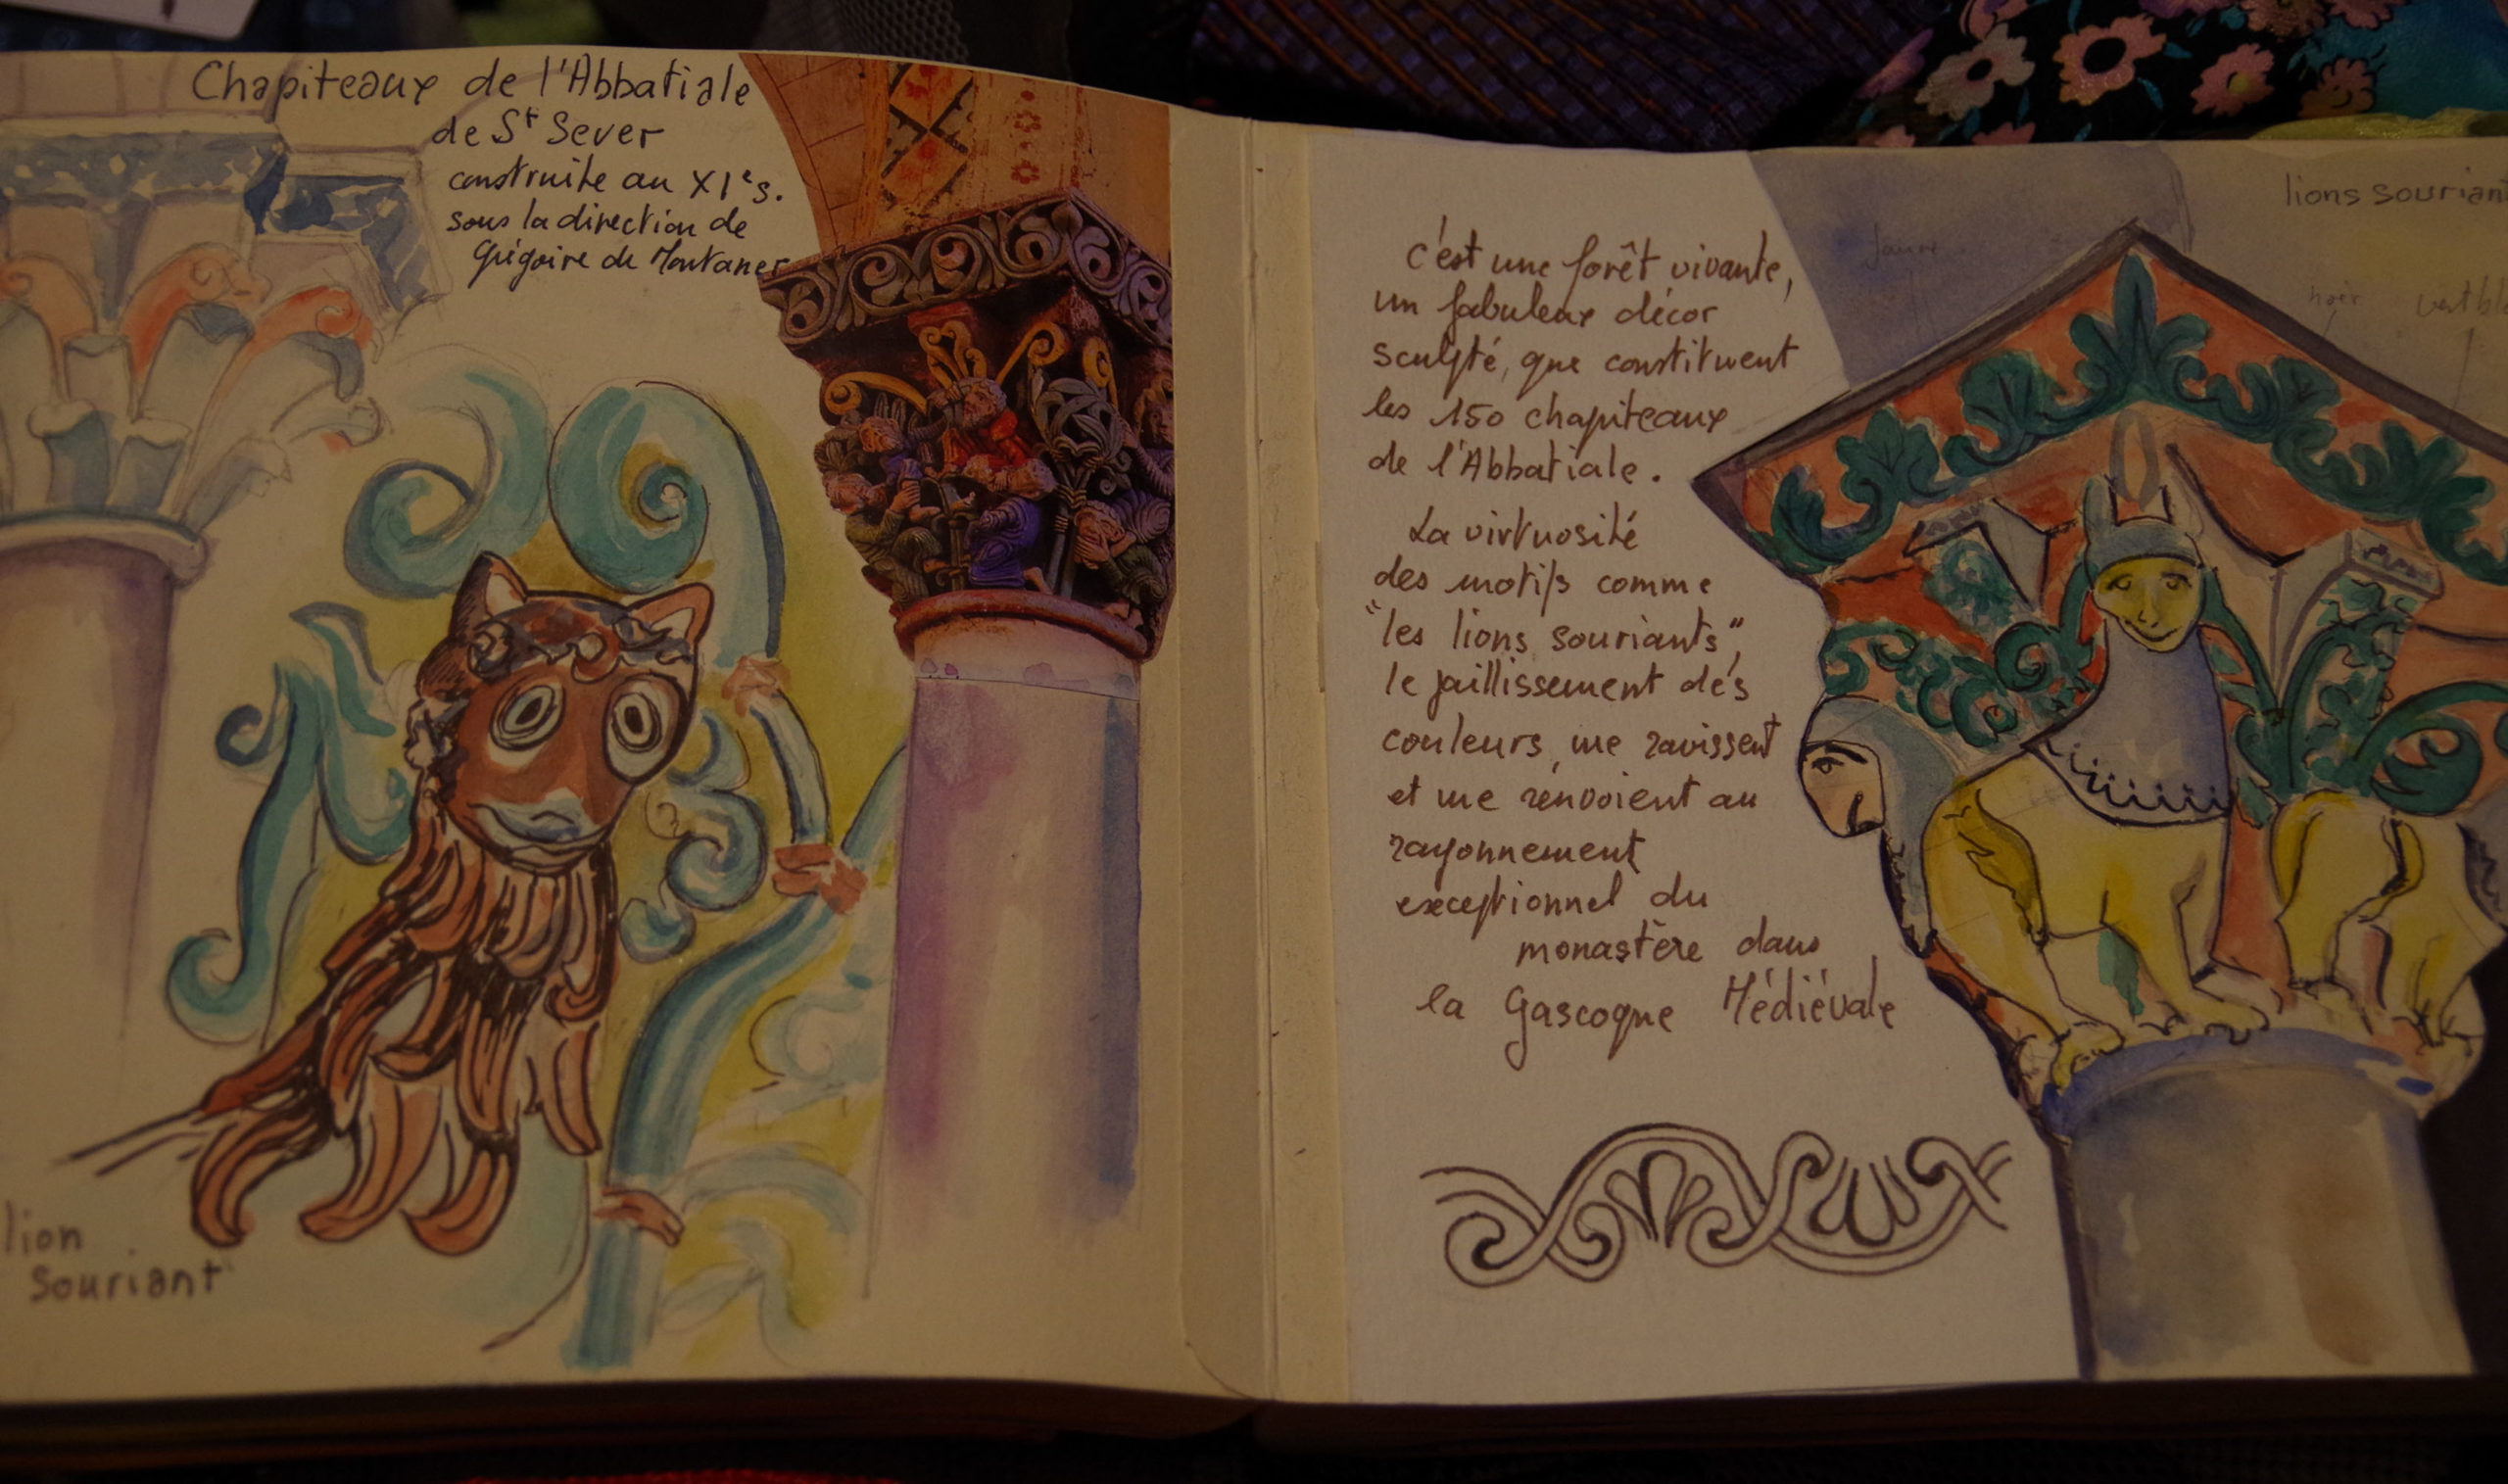 Chapiteaux de l'Abbatiale
de St Sever
construite au XIe s.
sous la direction de
Grégoire de Montaner
lion
souriant
c'est une forêt vivante,
un fabuleux décor
sculpté, que constituent
les 150 chapiteaux
de l'Abbatiale.
La virtuosité
des motifs comme
"les lions souriants",
le jaillissement des
couleurs, me ravissent
et me renvoient au
rayonnement
exceptionnel du
monastère dans
la Gascogne Médiévale
lions souriant
jaune
noir
vert